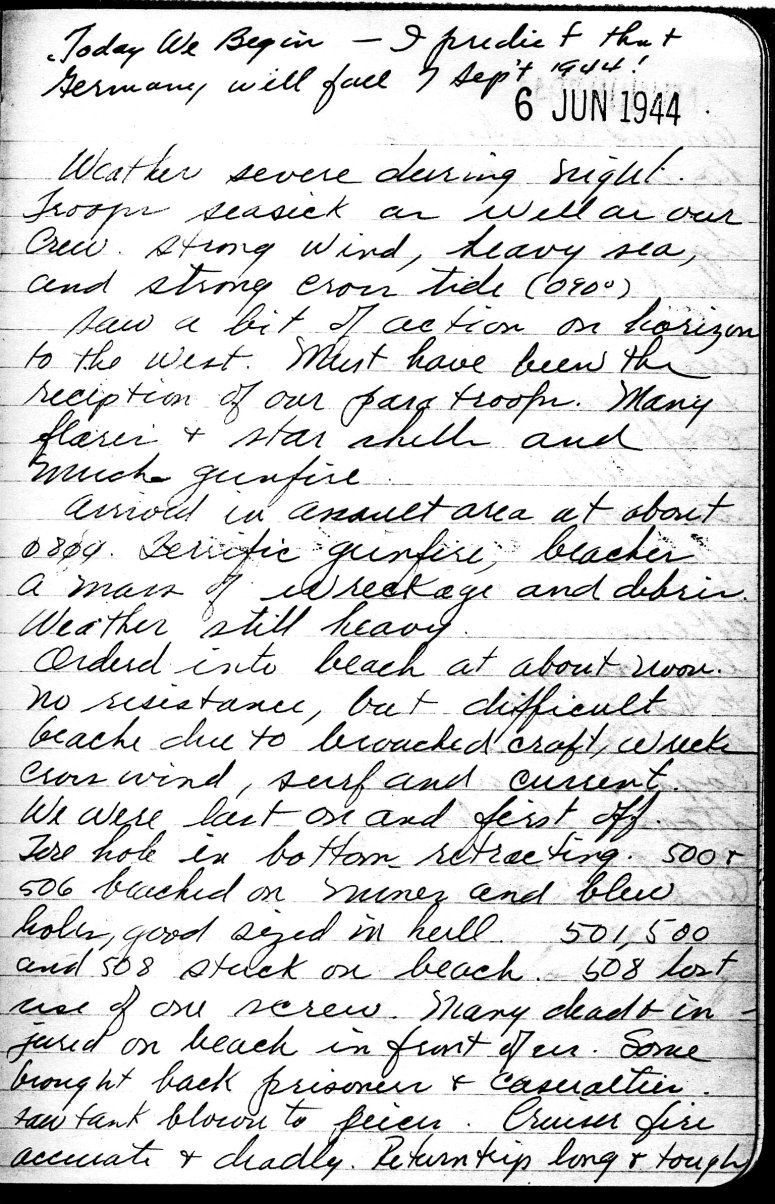 Today We Begin — I predict that
Germany will fall 7 Sep't 1944!
6 JUN 1944
Weather severe during night.
Troops seasick as well as our
Crew. Strong wind, heavy sea,
and strong cross tide (090°)
Saw a bit of action on horizon
to the west. Must have been the
reception of our paratroops. Many
flares + star shells and
much gunfire
Arrived in assault area at about
0809. Terrific gunfire, beaches
a mass of wreckage and debris.
Weather still heavy.
Orderd into beach at about noon.
No resistance, but difficult
beache due to broached craft, wrecks
cross wind, surf and current.
We were last on and first off.
Tore hole in bottom retracting. 500 +
506 beached on mines and blew
holes, good sized in hull. 501, 500
and 508 stuck on beach. 508 lost
use of one screw. Many dead + in-
jured on beach in front of us. Some
brought back prisoners + casualties.
Saw tank blown to peices. Cruiser fire
accurate + deadly. Return trip long + tough